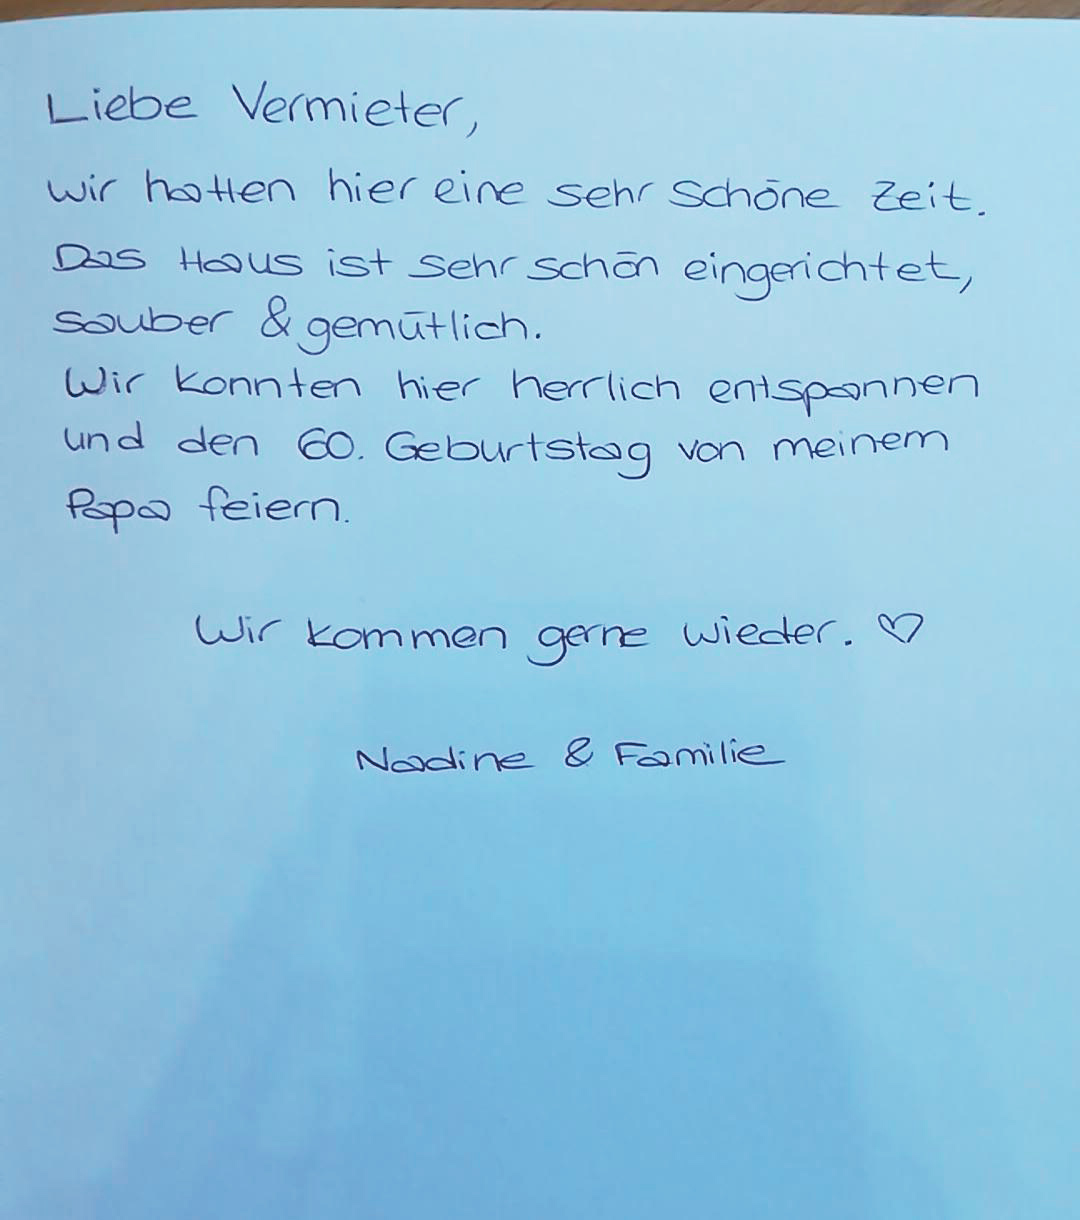 Liebe Vermieter,
wir hatten hier eine sehr schöne Zeit.
Das Haus ist sehr schön eingerichtet,
sauber & gemütlich.
Wir konnten hier herrlich entspannen
und den 60. Geburtstag von meinem
Papa feiern.
Wir kommen gerne wieder. ♡
Nadine & Familie